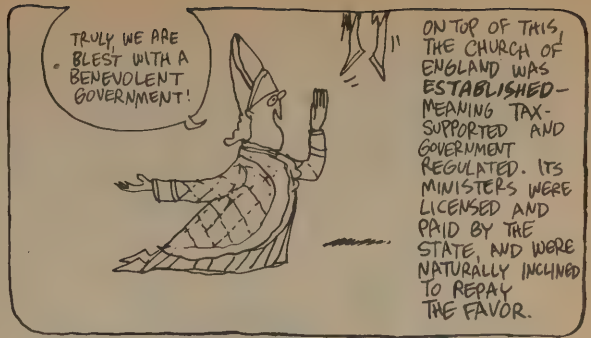 TRULY, WE ARE
BLEST WITH A
BENEVOLENT
GOVERNMENT!
ON TOP OF THIS,
THE CHURCH OF
ENGLAND WAS
ESTABLISHED—
MEANING TAX-
SUPPORTED AND
GOVERNMENT
REGULATED. ITS
MINISTERS WERE
LICENSED AND
PAID BY THE
STATE, AND WERE
NATURALLY INCLINED
TO REPAY
THE FAVOR.